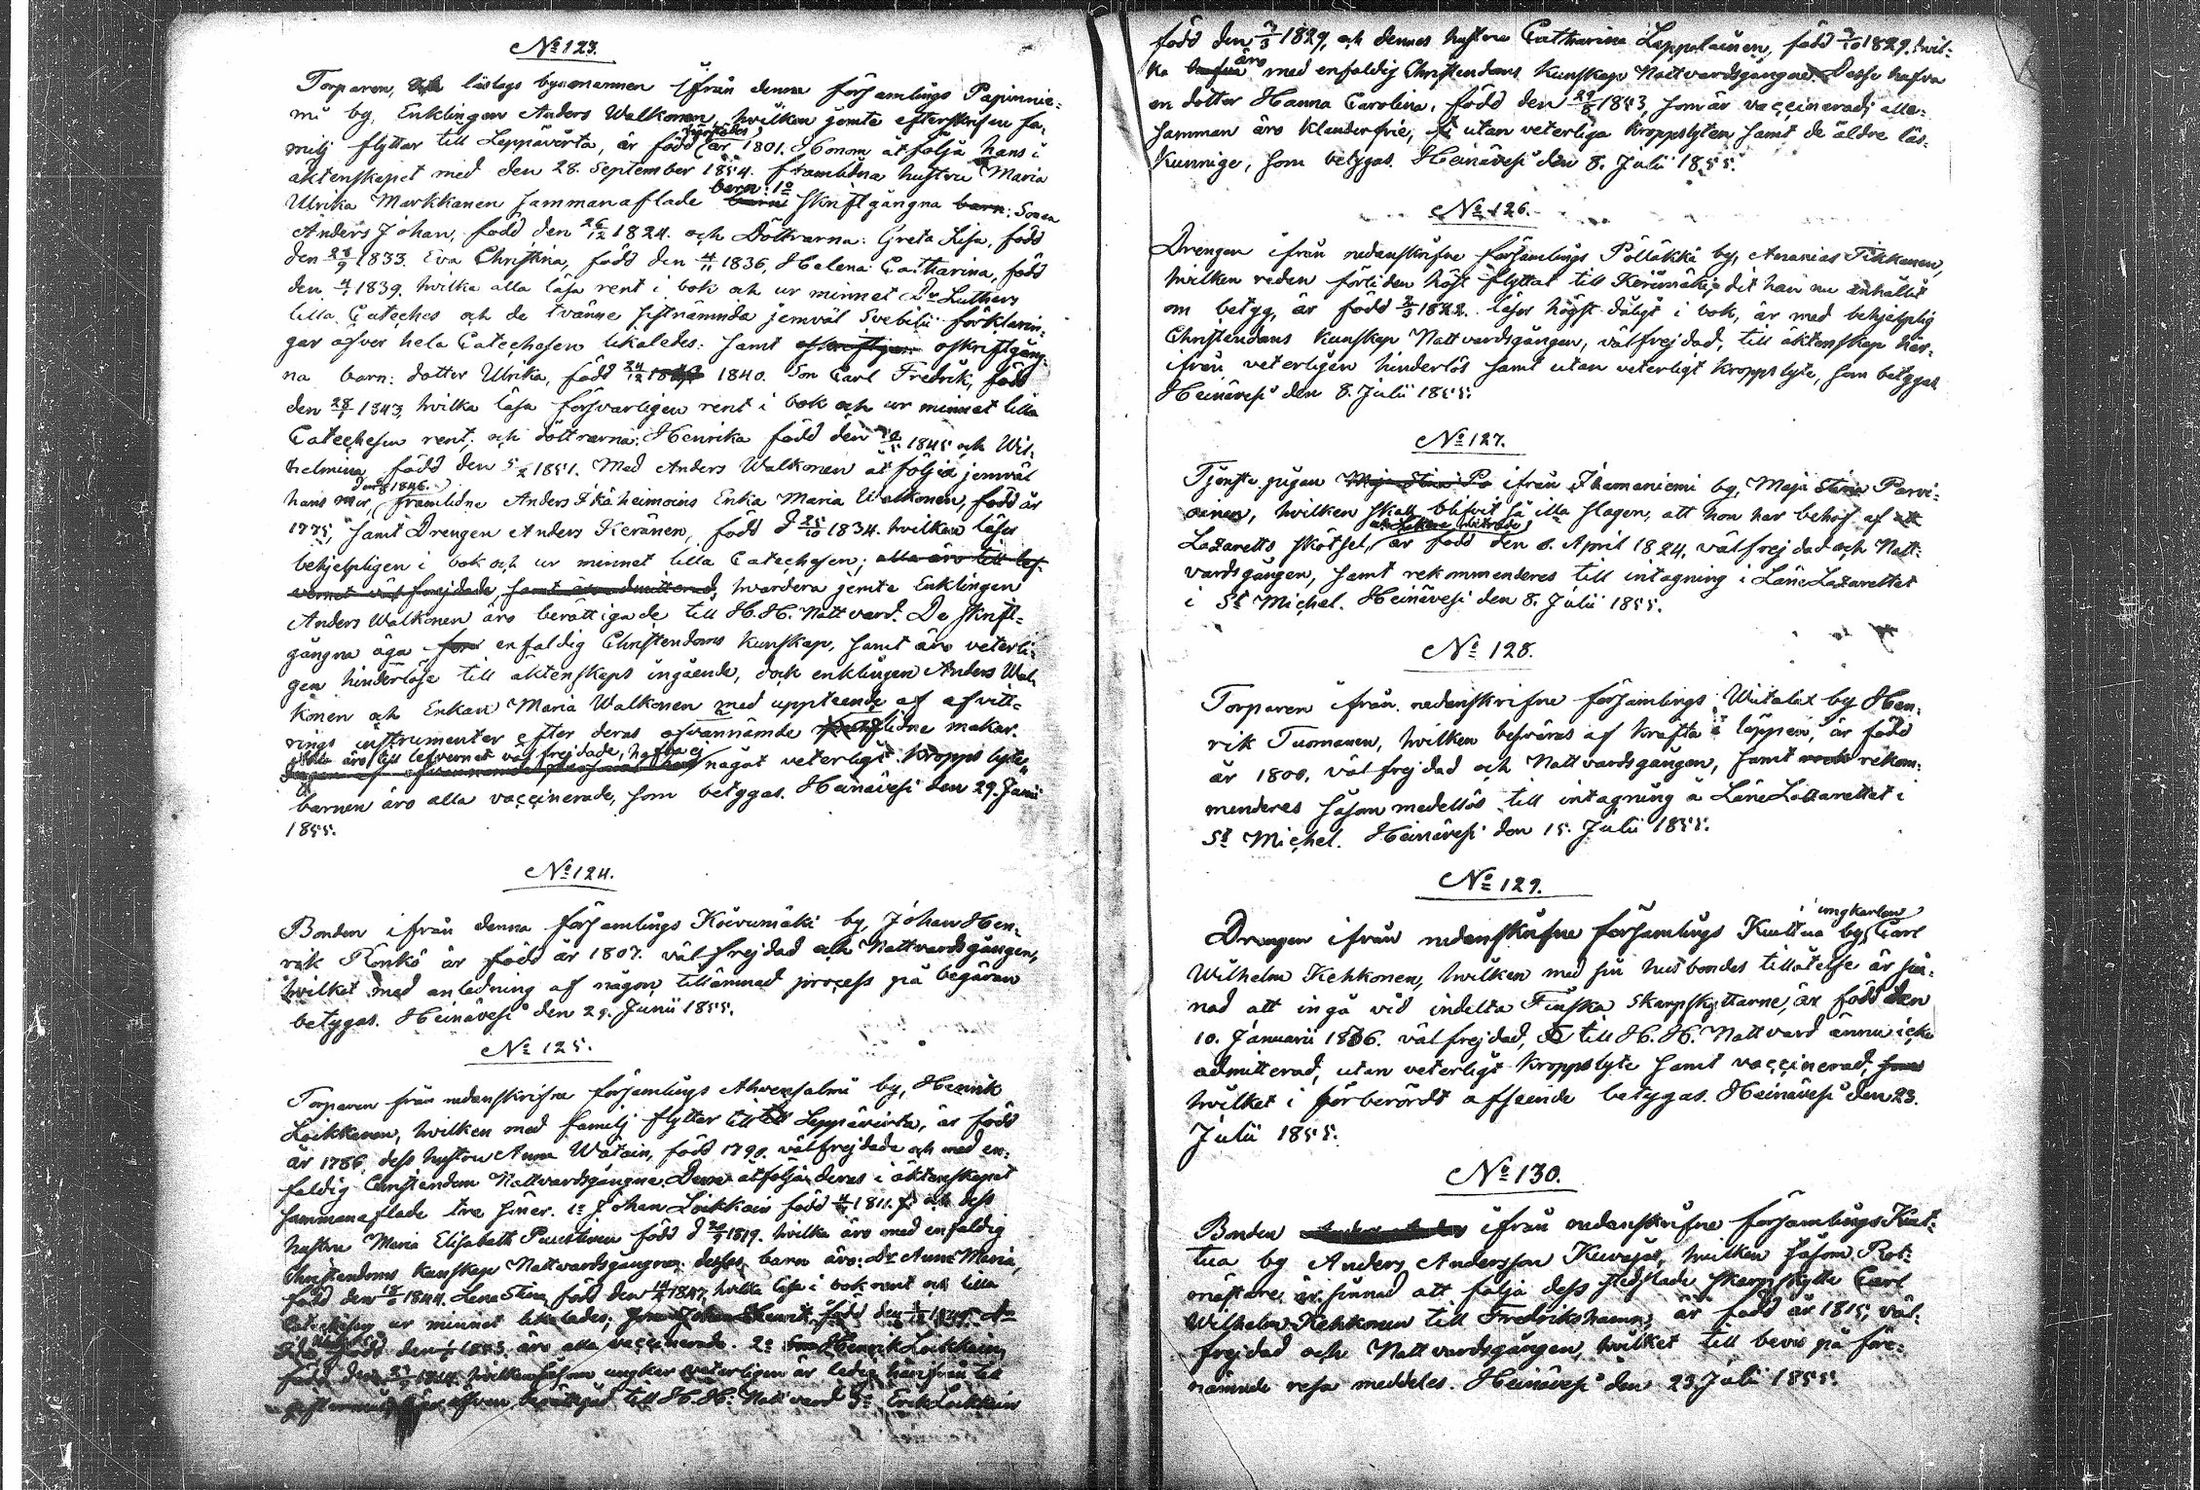 No 123.
Torparen, och lästags bysomannen ifrån denna församlings Papinnie-
mi by, Enklingen Anders Walkonen, hvilken jemte efterskrifne fa-
milj flyttar till Leppävirta, är född år 1801. Honom åtfölja hans i
äktenskapet med den 28. September 1854. framlidna hustru Maria
Ulrika Markkanen sammanaflade barn: 1o skriftgångna barn: Sonen
Anders Johan, född den 26/12 1824. och Döttrarna: Greta Lisa, född
den 28/9 1833. Eva Christina, född den 4/11 1836, Helena Catharina, född
den 4/1 1839. hvilka alla läsa rent i bok och ur minnet Dr Luthers
lilla Cateches och de tvänne sistnämnda jemväl Svebilii förklarin-
gar öfver hela Catechesen likaledes: samt oskriftgång-
na barn: dotter Ulrika, född 24/12 1840. Son Carl Fredrik, född
den 28/1 1843, hvilka läsa försvarligen rent i bok och ur minnet lilla
Catechesen rent; och döttrarna: Henrika född den 1845 och Wil-
helmina, född den 5/2 1851. Med Anders Walkonen åtfölja jemväl
hans mor, framlidne Anders Ikäheimoins Enka Maria Walkonen, född år
1775, samt Drengen Anders Keränen, född d 25/10 1834. hvilken läser
behjelpligen i bok och ur minnet lilla Catechesen; alla äro till lef-
vernet väl frejdade, samt äro admitterad, hvardera jemte Enklingen
Anders Walkonen äro berättigade till H. H. Nattvard. De skrift-
gångna äga enfaldig Christendoms kunskap, samt äro veterli-
gen hinderlöse till äktenskaps ingående, dock enklingen Anders Wal-
konen och Enkan Maria Walkonen med uppteende af afvitt-
rings instrumenter efter deras ofvannämde framlidne makar.
äro till lefvernet väl frejdade, hafva ej något veterligt kroppslyte,
barnen äro alla vaccinerade, som betygas. Heinävesi den 29. Junii
1855.
No 124.
Bonden ifrån denna församlings Koivumäki by, Johan Hen-
rik Ronkö är född år 1807. väl frejdad och Nattvardsgången,
hvilket med anledning af någon tillämnad process på begäran
betygas. Heinävesi den 29. Junii 1855.
No 125.
Torparen från nedanskrifne församlings Ahvensalmi by, Henrik
Loikkanen, hvilken med familj flyttar till Leppävirta, är född
år 1786, dess hustru Anna Watain, född 1790. välfrejdade och med en-
faldig Christendom Nattvardsgångne. Dem åtfölja deras i äktenskapet
sammanaflade tre söner. 1o Johan Loikkain född 1811. och dess
hustru Maria Elisabeth Puustinen född d 1819. hvilka äro med enfaldig
Christendoms kunskap Nattvardsgångna: desses barn äro: Anna Maria,
född den 1844. Lena Stina, född den 1847, hvilka läsa i bok rent och lilla
Catechesen ur minnet likaledes; Johan Henrik född den
född den 1853. äro alla vaccinerade. 2o Son Henrik Loikkain,
född den hvilken såsom ungkar veterligen är ledig härifrån till
giftermål, är äfven berättigad till H. H. Nattvard 3o Erik Loikkain
född den 7/3 1829, och dennes hustru Catharina Leppolainen, född 1829. hvil-
ka äro med enfaldig Christendoms Kunskap Nattvardsgångna. Desse hafva
en dotter Hanna Carolina, född den 29/8 1853, som är vaccinerad; alle-
samman äro klanderfrie, utan veterliga kroppslyten samt de äldre läs-
kunnige, som betygas. Heinävesi den 8. Julii 1855.
No 126.
Drengen ifrån nedanskrifne församlings Pölläkkä by, Ananias Tikkanen,
hvilken redan förliden höst flyttat till Kerimäki, dit han nu anhållit
om betyg, är född 1822. läser högst dåligt i bok, är med behjelplig
Christendoms kunskap Nattvardsgången, välfrejdad, till äktenskap här-
ifrån veterligen hinderlös samt utan veterligt kroppslyte, som betygas.
Heinävesi den 8. Julii 1855.
No 127.
Tjenste pigan Maja Stina Pa ifrån Ihamaniemi by, Maja Stina Parvi-
ainen, hvilken skall blifvit så illa slagen, att hon har behof af
Lazaretts skötsel, är född den 8. April 1824, välfrejdad och Natt-
vardsgången, samt rekommenderes till intagning i Läne Lazarettet
i St Michel. Heinävesi den 8. Julii 1855.
No 128.
Torparen ifrån nedanskrifne församlings Wihtalax by Hen-
rik Tuomanen, hvilken besväras af kräfta i läppen, är född
år 1800, väl frejdad och Nattvardsgången, samt rekom-
menderes såsom medellös till intagning å Läne Lazarettet i
St Michel. Heinävesi den 15. Julii 1855.
No 129.
Drengen ifrån nedanskrifne församlings Kuittua by, ungkarlen Carl
Wilhelm Kehkonen, hvilken med sin husbondes tillåtelse är sin-
nad att ingå vid indelta Finska Skarpskyttarne, är född den
10. Januarii 1836. välfrejdad, till H. H. Nattvard ännu icke
admitterad, utan veterligt kroppslyte samt vaccinerad,
hvilket i förberördt afseende betygas. Heinävesi den 23.
Julii 1855.
No 130.
Bonden ifrån nedanskrifne församlings Kuit-
tua by Anders Andersson Kuvaja, hvilken såsom Rot-
mästare är sinnad att följa dess stedslade skarpskytte Carl
Wilhelm Kehkonen till Fredrikshamn, är född år 1815, väl-
frejdad och Nattvardsgången, hvilket till bevis på före-
nämnde resa meddeles. Heinävesi den 23. Julii 1855.